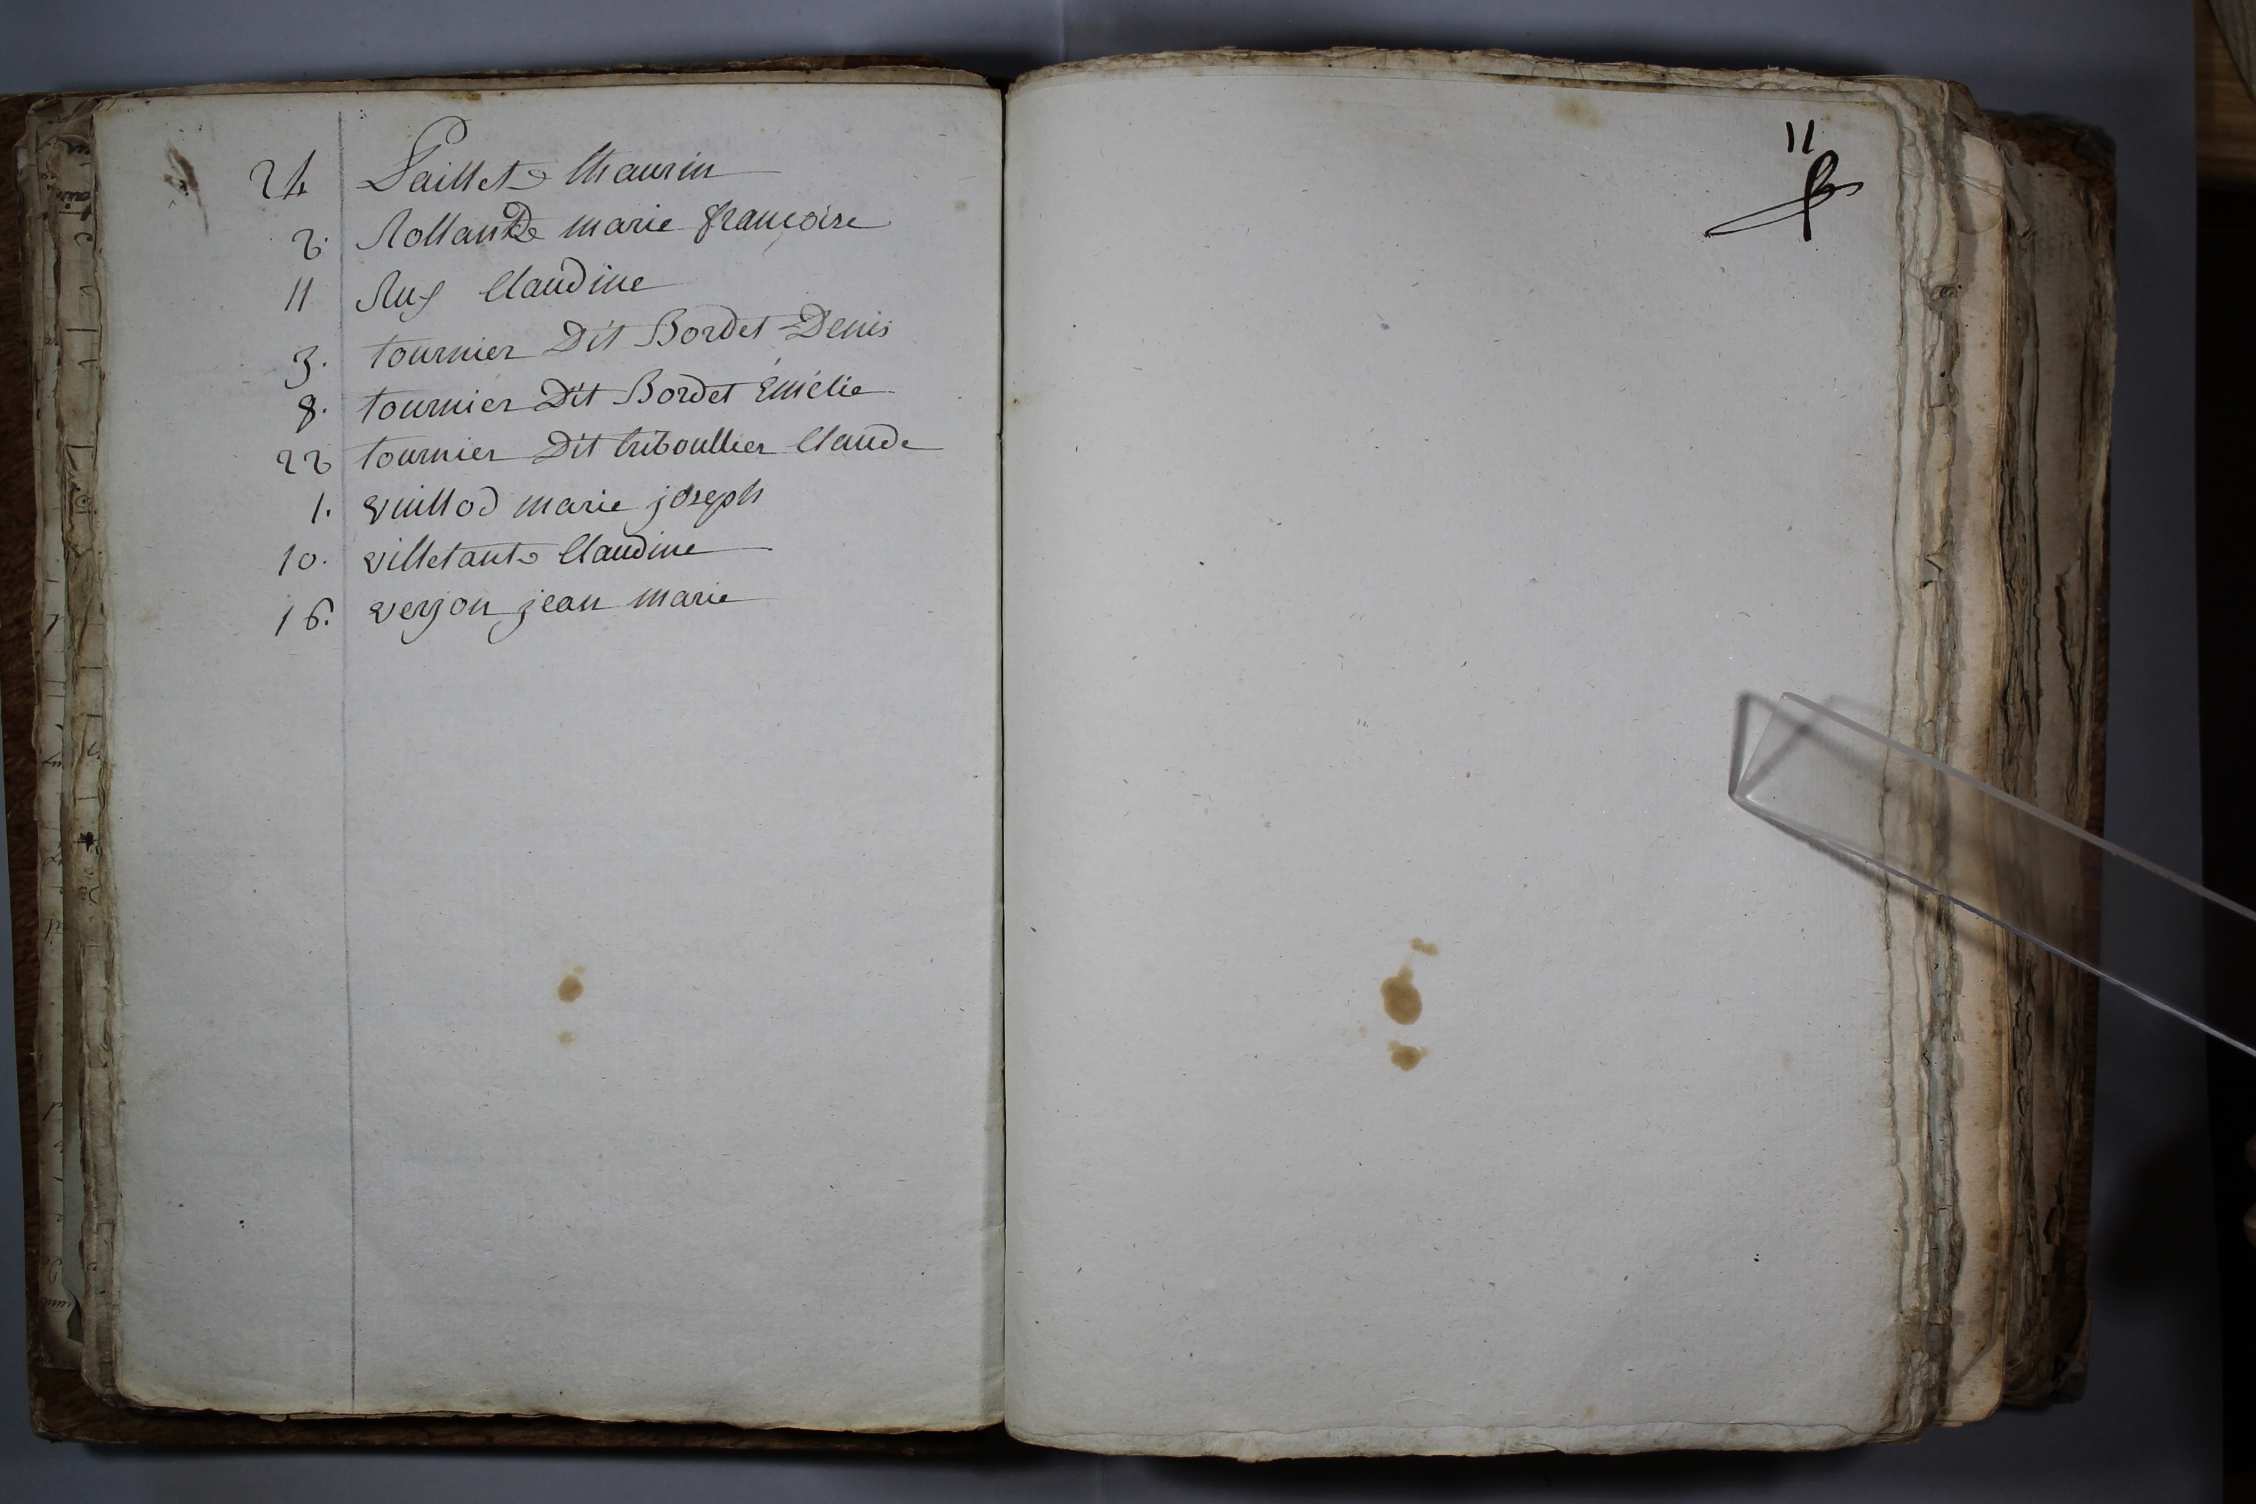 24 Paillet Maurin
2. Rollande marie françoise
11 Ruf Claudine
3. tournier Dit Bordet Denis
8. tournier Dit Bordet Emélie
22 tournier Dit triboullier Claude
1. vuillod marie joseph
10. villetant Claudine
16. verjon jean marie
11